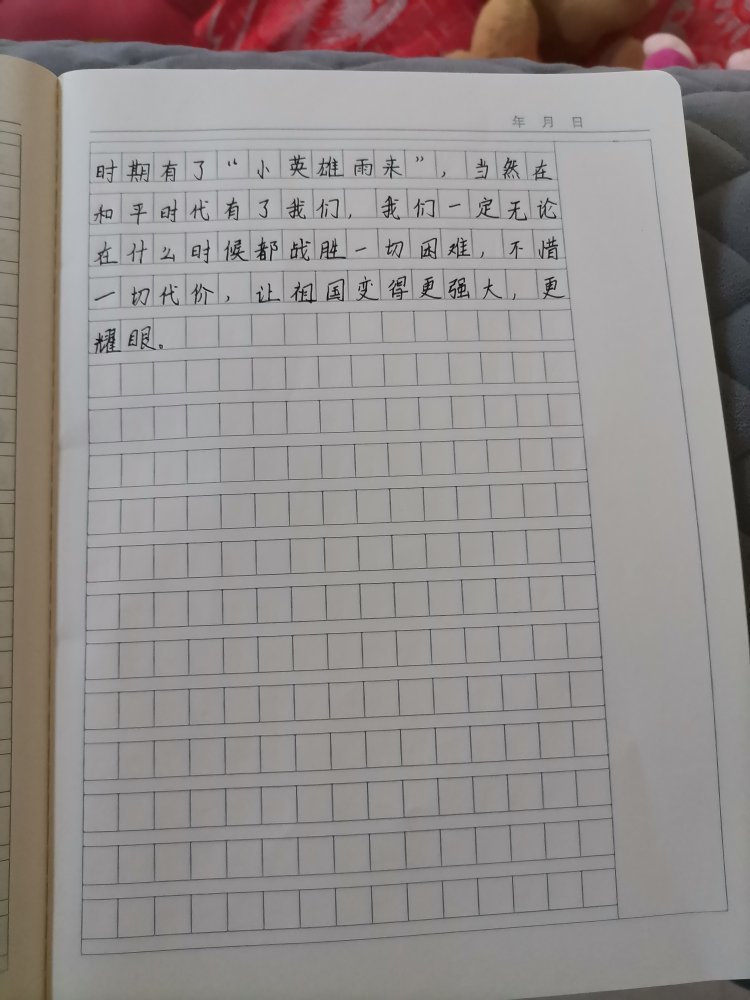 年 月 日
时期有了“小英雄雨来”，当然在
和平时代有了我们，我们一定无论
在什么时候都战胜一切困难，不惜
一切代价，让祖国变得更强大，更
耀眼。